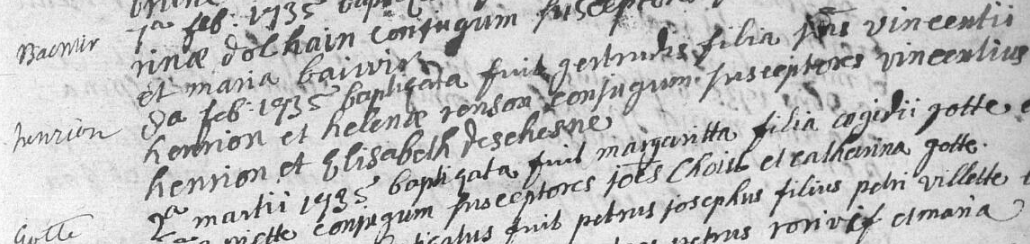 Bacmir
1a feb: 1735 baptiz
rinæ dolhain conjugum susceptores
et maria baiwir
henrion
8a feb: 1735 baptizata fuit gertrudis filia vincentii
henrion et helenæ ronson conjugum. susceptores vincentius
henrion et Elisabeth deschesne
Gotte
2a martii 1735 baptizata fuit margaritta filia ægidii gotte
conjugum susceptores joes Choil et catharina gotte.
fuit petrus josephus filius petri villette
petrus et maria